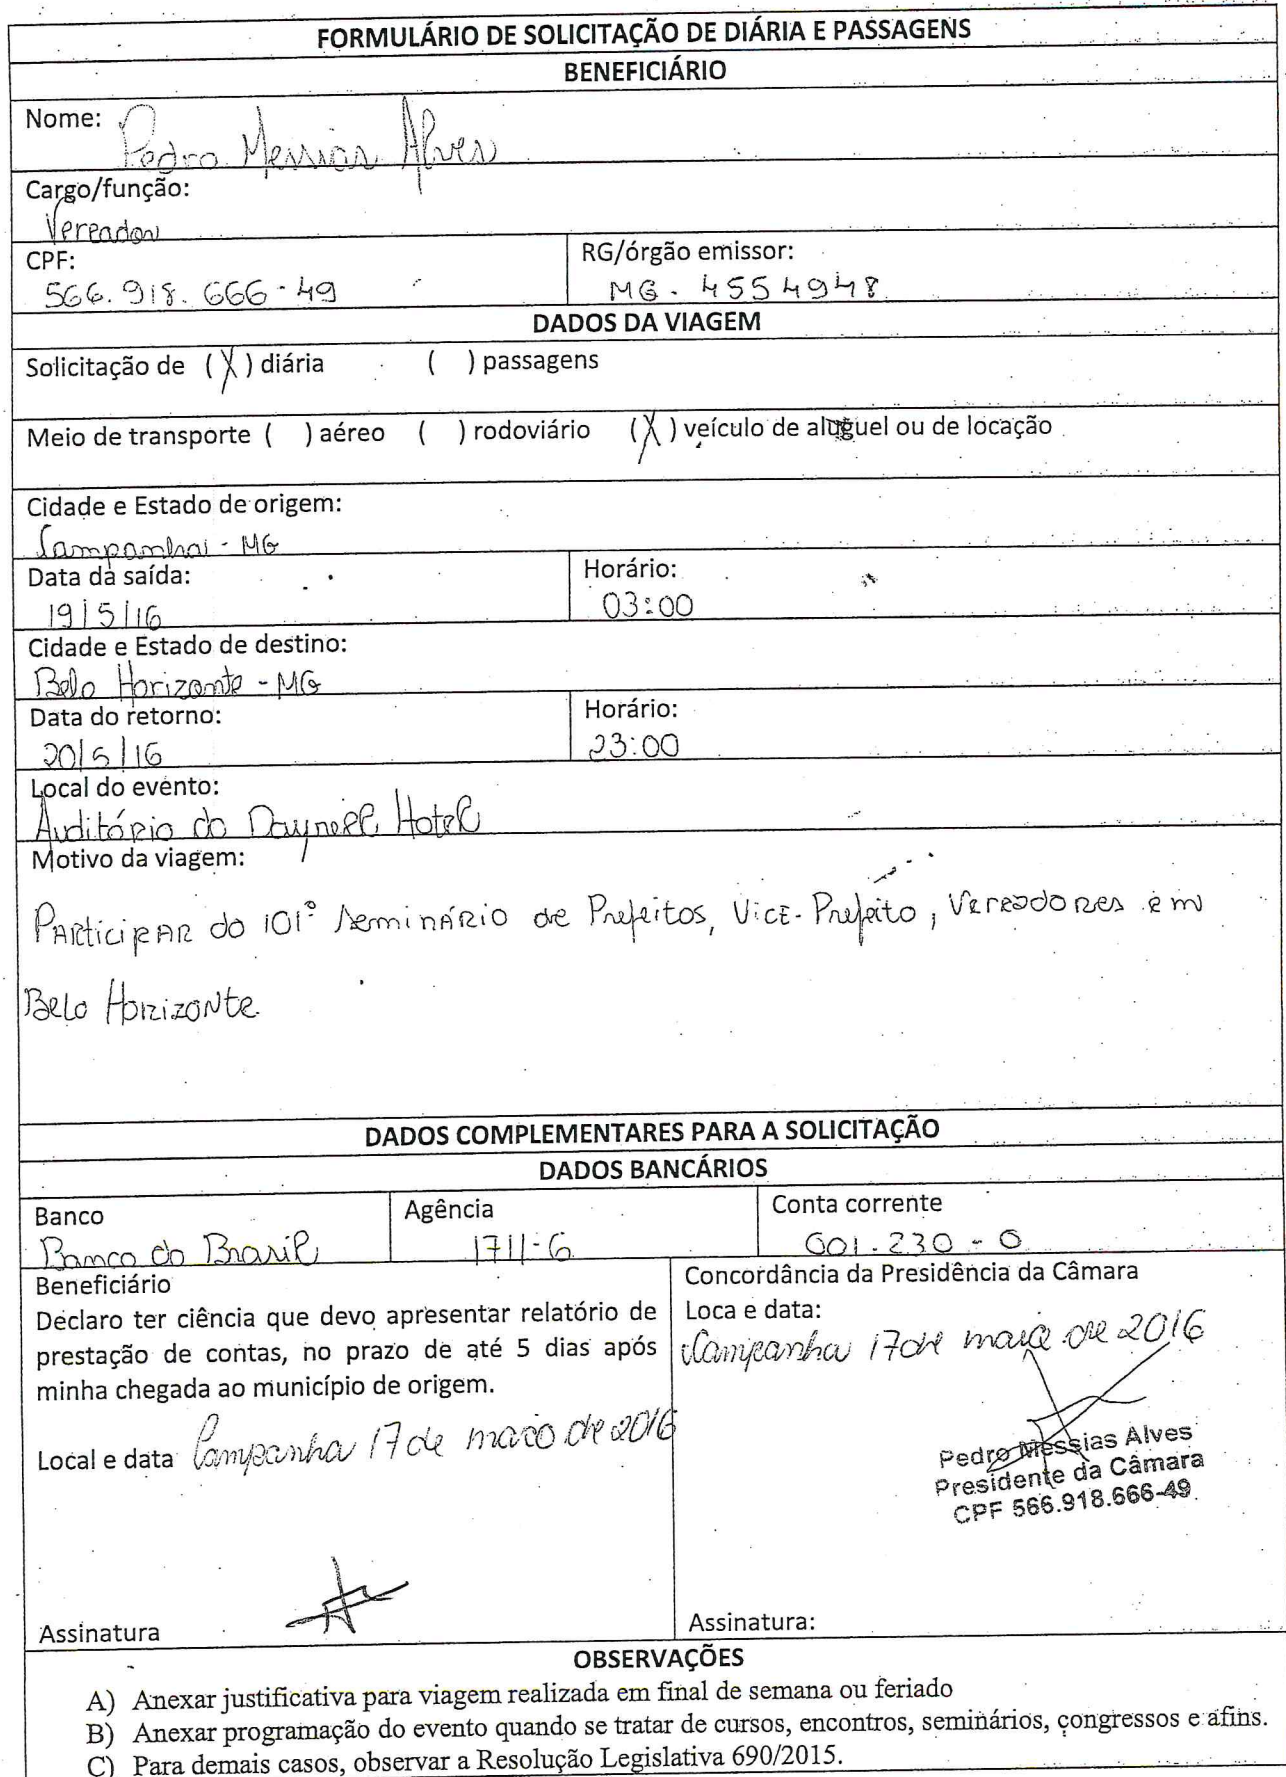 FORMULÁRIO DE SOLICITAÇÃO DE DIÁRIA E PASSAGENS
BENEFICIÁRIO
Nome:
Pedro Messias Alves
Cargo/função:
Vereador
CPF:
566.918.666-49
RG/órgão emissor:
MG. 4554948
DADOS DA VIAGEM
Solicitação de (X) diária ( ) passagens
Meio de transporte ( ) aéreo ( ) rodoviário (X) veículo de aluguel ou de locação
Cidade e Estado de origem:
Campanha - MG
Data da saída:
19/5/16
Horário:
03:00
Cidade e Estado de destino:
Belo Horizonte - MG
Data do retorno:
20/5/16
Horário:
23:00
Local do evento:
Auditório do Dayrell Hotel
Motivo da viagem:
Participar do 101° Seminário de Prefeitos, Vice-Prefeito, Vereadores em
Belo Horizonte
DADOS COMPLEMENTARES PARA A SOLICITAÇÃO
DADOS BANCÁRIOS
Banco
Banco do Brasil
Agência
1711-6
Conta corrente
601.230-0
Beneficiário
Declaro ter ciência que devo apresentar relatório de
prestação de contas, no prazo de até 5 dias após
minha chegada ao município de origem.
Local e data Campanha 17 de maio de 2016
Assinatura
Concordância da Presidência da Câmara
Loca e data:
Campanha 17 de maio de 2016
Pedro Messias Alves
Presidente da Câmara
CPF 566.918.666-49
Assinatura:
OBSERVAÇÕES
A) Anexar justificativa para viagem realizada em final de semana ou feriado
B) Anexar programação do evento quando se tratar de cursos, encontros, seminários, congressos e afins.
C) Para demais casos, observar a Resolução Legislativa 690/2015.